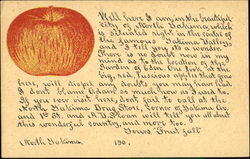 Well here I am, in the beautiful
City of North Yakima, which
is situated right in the center of
the famous Yakima Valley,
and I tell you its a wonder.
There is no doubt now in my
mind as to the location of the
Garden of Eden. One look at the
big, red, luscious apples that grow
here, will dispel any doubts you may have had.
I don't blame Adam so much now as I used to.
If you ever visit here, dont fail to call at the
North Yakima Drug Store, corner of Yakima Ave
and 1st St. and A.D. Sloan will tell you all about
this wonderful country, and more too.
Yours "Fruit-fully"
North Yakima, 190 .